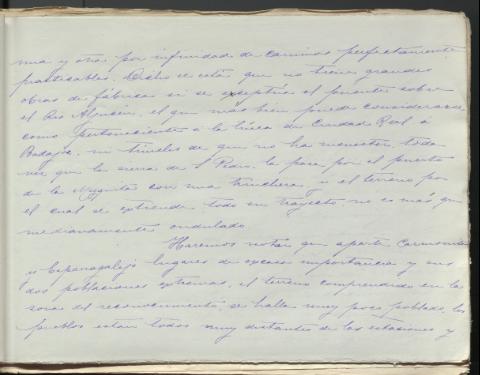 una y otra por infinidad de caminos perfectamente
practicables. Dicho se está que no tienen grandes
obras de fábrica si se exceptúa el puente sobre
el Rio Aljucén, el que más bien puede considerarse
como perteneciente a la linea de Ciudad Real a
Badajoz, ni túneles de que no ha menester, toda
vez que la sierra de S. Pedro, la pasa por el puerto
de la con una trinchera, y el terreno por
el cual se extiende todo su trayecto no es más que
medianamente ondulado
Haremos notar que aparte Carmonita
y lugares de escasa importancia y sus
dos poblaciones extremas, el terreno comprendido en la
zona del reconocimiento, se halla muy poco poblado, los
pueblos están todos muy distantes de las estaciones y